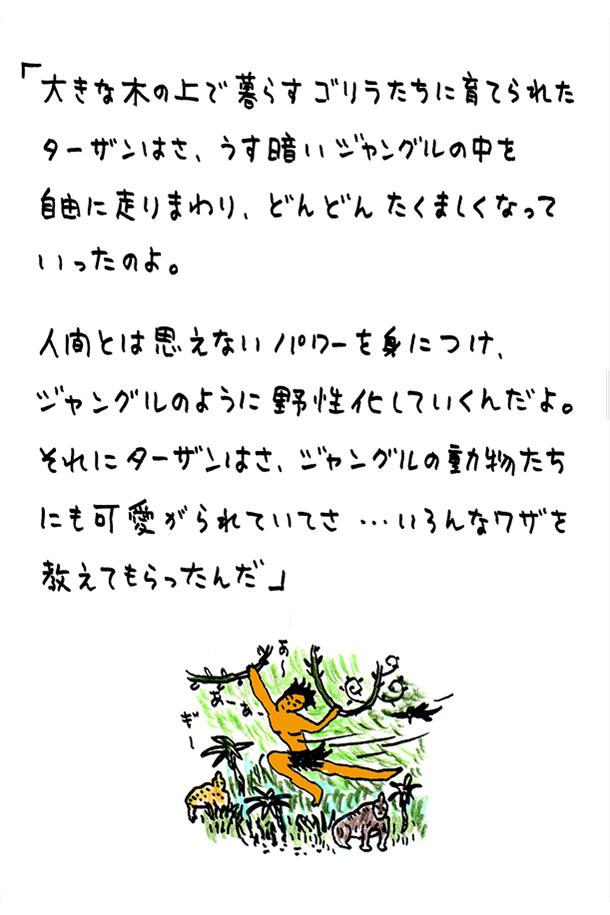 「大きな木の上で暮らすゴリラたちに育てられた
ターザンはさ、うす暗いジャングルの中を
自由に走りまわり、どんどんたくましくなって
いったのよ。
人間とは思えないパワーを身につけ、
ジャングルのように野性化していくんだよ。
それにターザンはさ、ジャングルの動物たち
にも可愛がられていてさ…いろんなワザを
教えてもらったんだ」
あ〜
あーあー
ギー